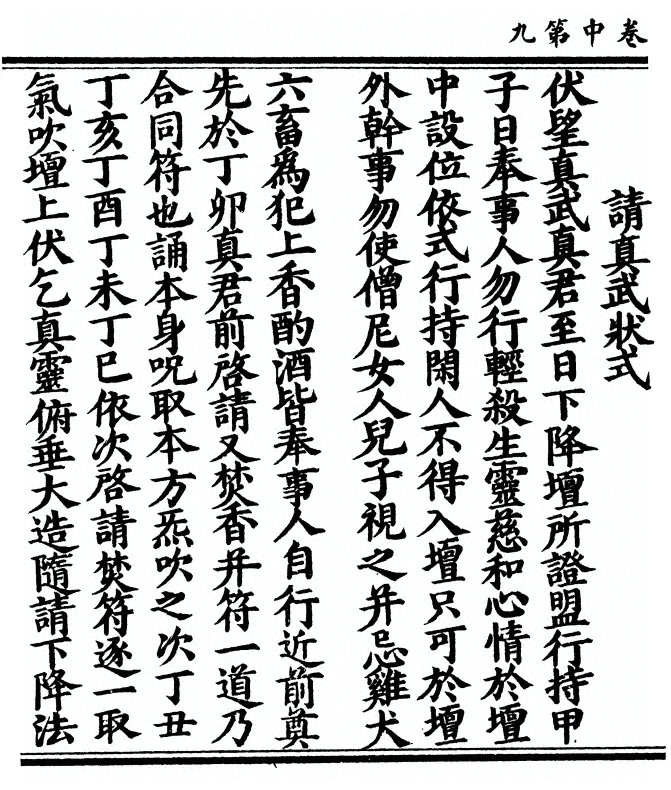 卷中第九
請真武狀式
伏望真武真君至日下降壇所證盟行持甲
子日奉事人勿行輕殺生靈慈和心情於壇
中設位依式行持閑人不得入壇只可於壇
外幹事勿使僧尼女人兒子視之并忌雞犬
六畜為犯上香酌酒皆奉事人自行近前奠
先於丁卯真君前啓請又焚香并符一道乃
合同符也誦本身呪取本方炁吹之次丁丑
丁亥丁酉丁未丁巳依次啓請焚符逐一取
氣吹壇上伏乞真靈俯垂大造隨請下降法